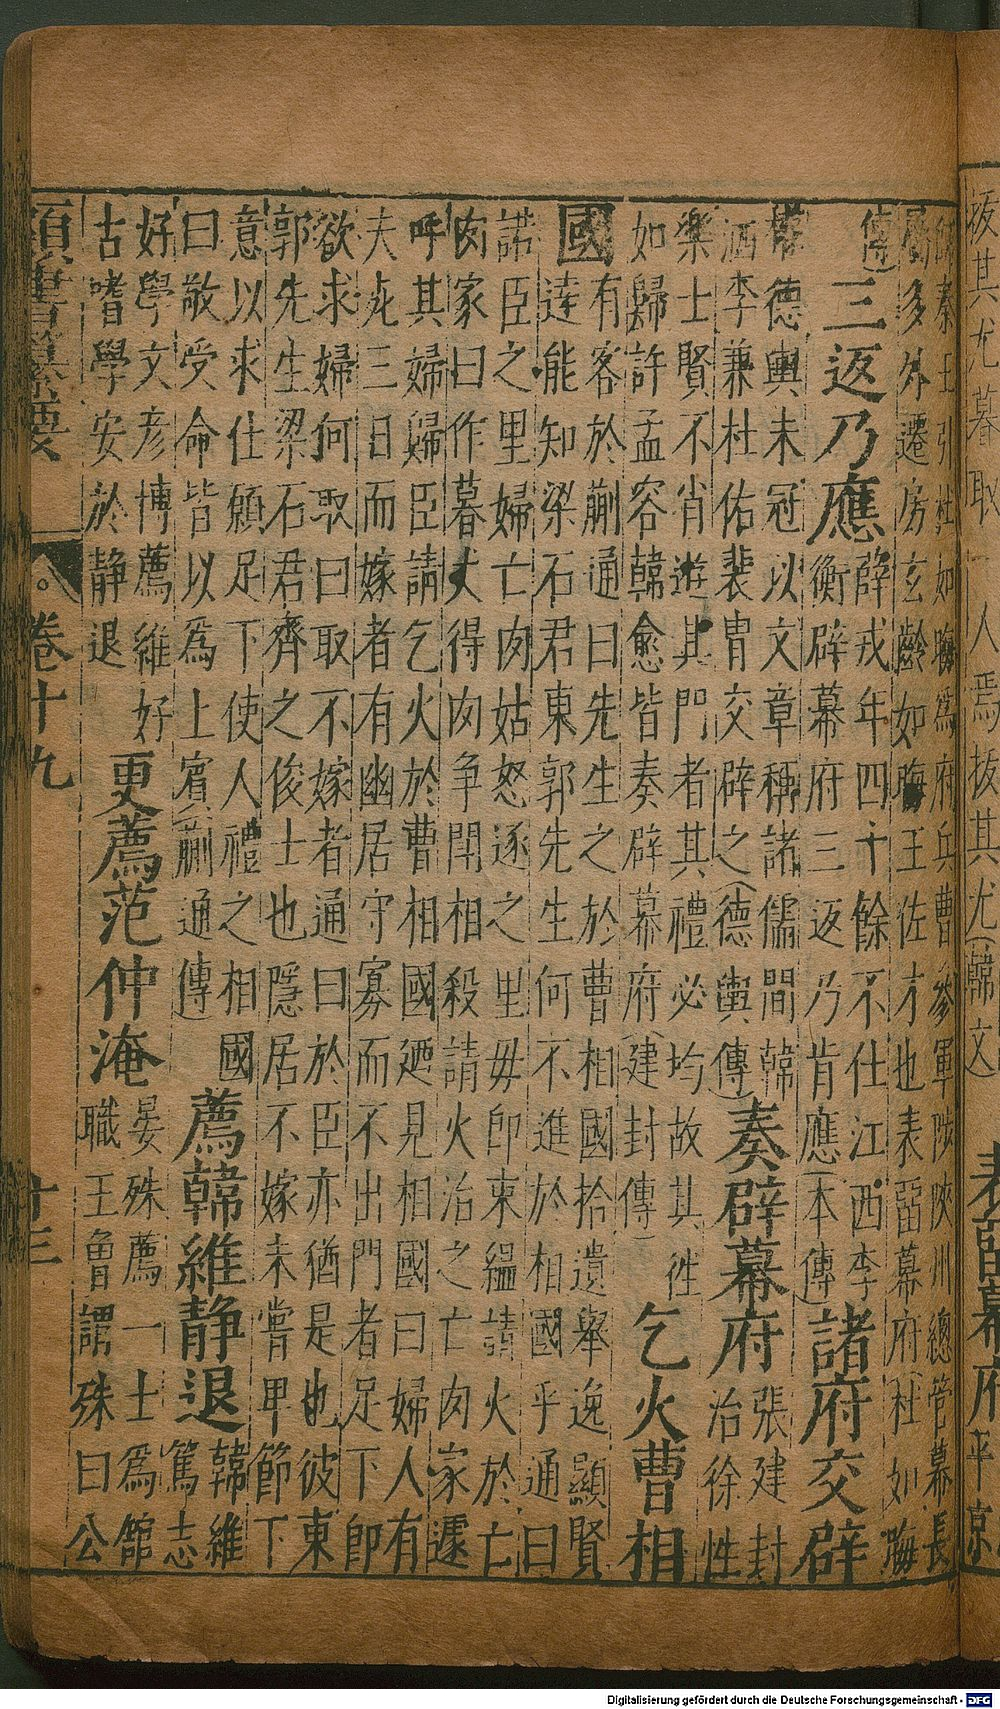 拔其尤暮取一人焉拔其尤(韓文)表留幕府平京
師秦王引杜如晦為府兵曹參軍陟陝州總管幕長
屬多外遷房玄齡如晦王佐才也表留幕府(杜如晦
傳)三返乃應
薛戎年四十餘不仕江西李
衡辟幕府三返乃肯應(本傳)
諸府交辟
權德輿未冠以文章稱諸儒間韓
洒李兼杜佑裴冑交辟之(德輿傳)
奏辟幕府
張建封
治徐性
樂士賢不肖遊其門者其禮必均故其徃
如歸許孟容韓愈皆奏辟幕府(建封傳)
乞火曹相
國
有客於蒯通曰先生之於曹相國拾遺舉逸顯賢
達能知梁石君東郭先生何不進於相國乎通曰
諾臣之里婦亡肉姑怒逐之里毋即束緼請火於亡
肉家曰作暮犬得肉争鬪相殺請火治之亡肉家遽
呼其婦歸臣請乞火於曹相國廼見相國曰婦人有
夫死三日而嫁者有幽居守寡而不出門者足下即
欲求婦何取曰取不嫁者通曰於臣亦猶是也彼東
郭先生梁石君齊之俊士也隱居不嫁未嘗卑節下
意以求仕願足下使人禮之相國
曰敬受命皆以為上賓(蒯通傳)
薦韓維靜退
韓維
篤志
好學文彥博薦維好
古嗜學安於靜退
更薦范仲淹
晏殊薦一士為舘
職王魯謂殊曰公
類書纂要 卷十九 廿三
Digitalisierung gefördert durch die Deutsche Forschungsgemeinschaft - DFG